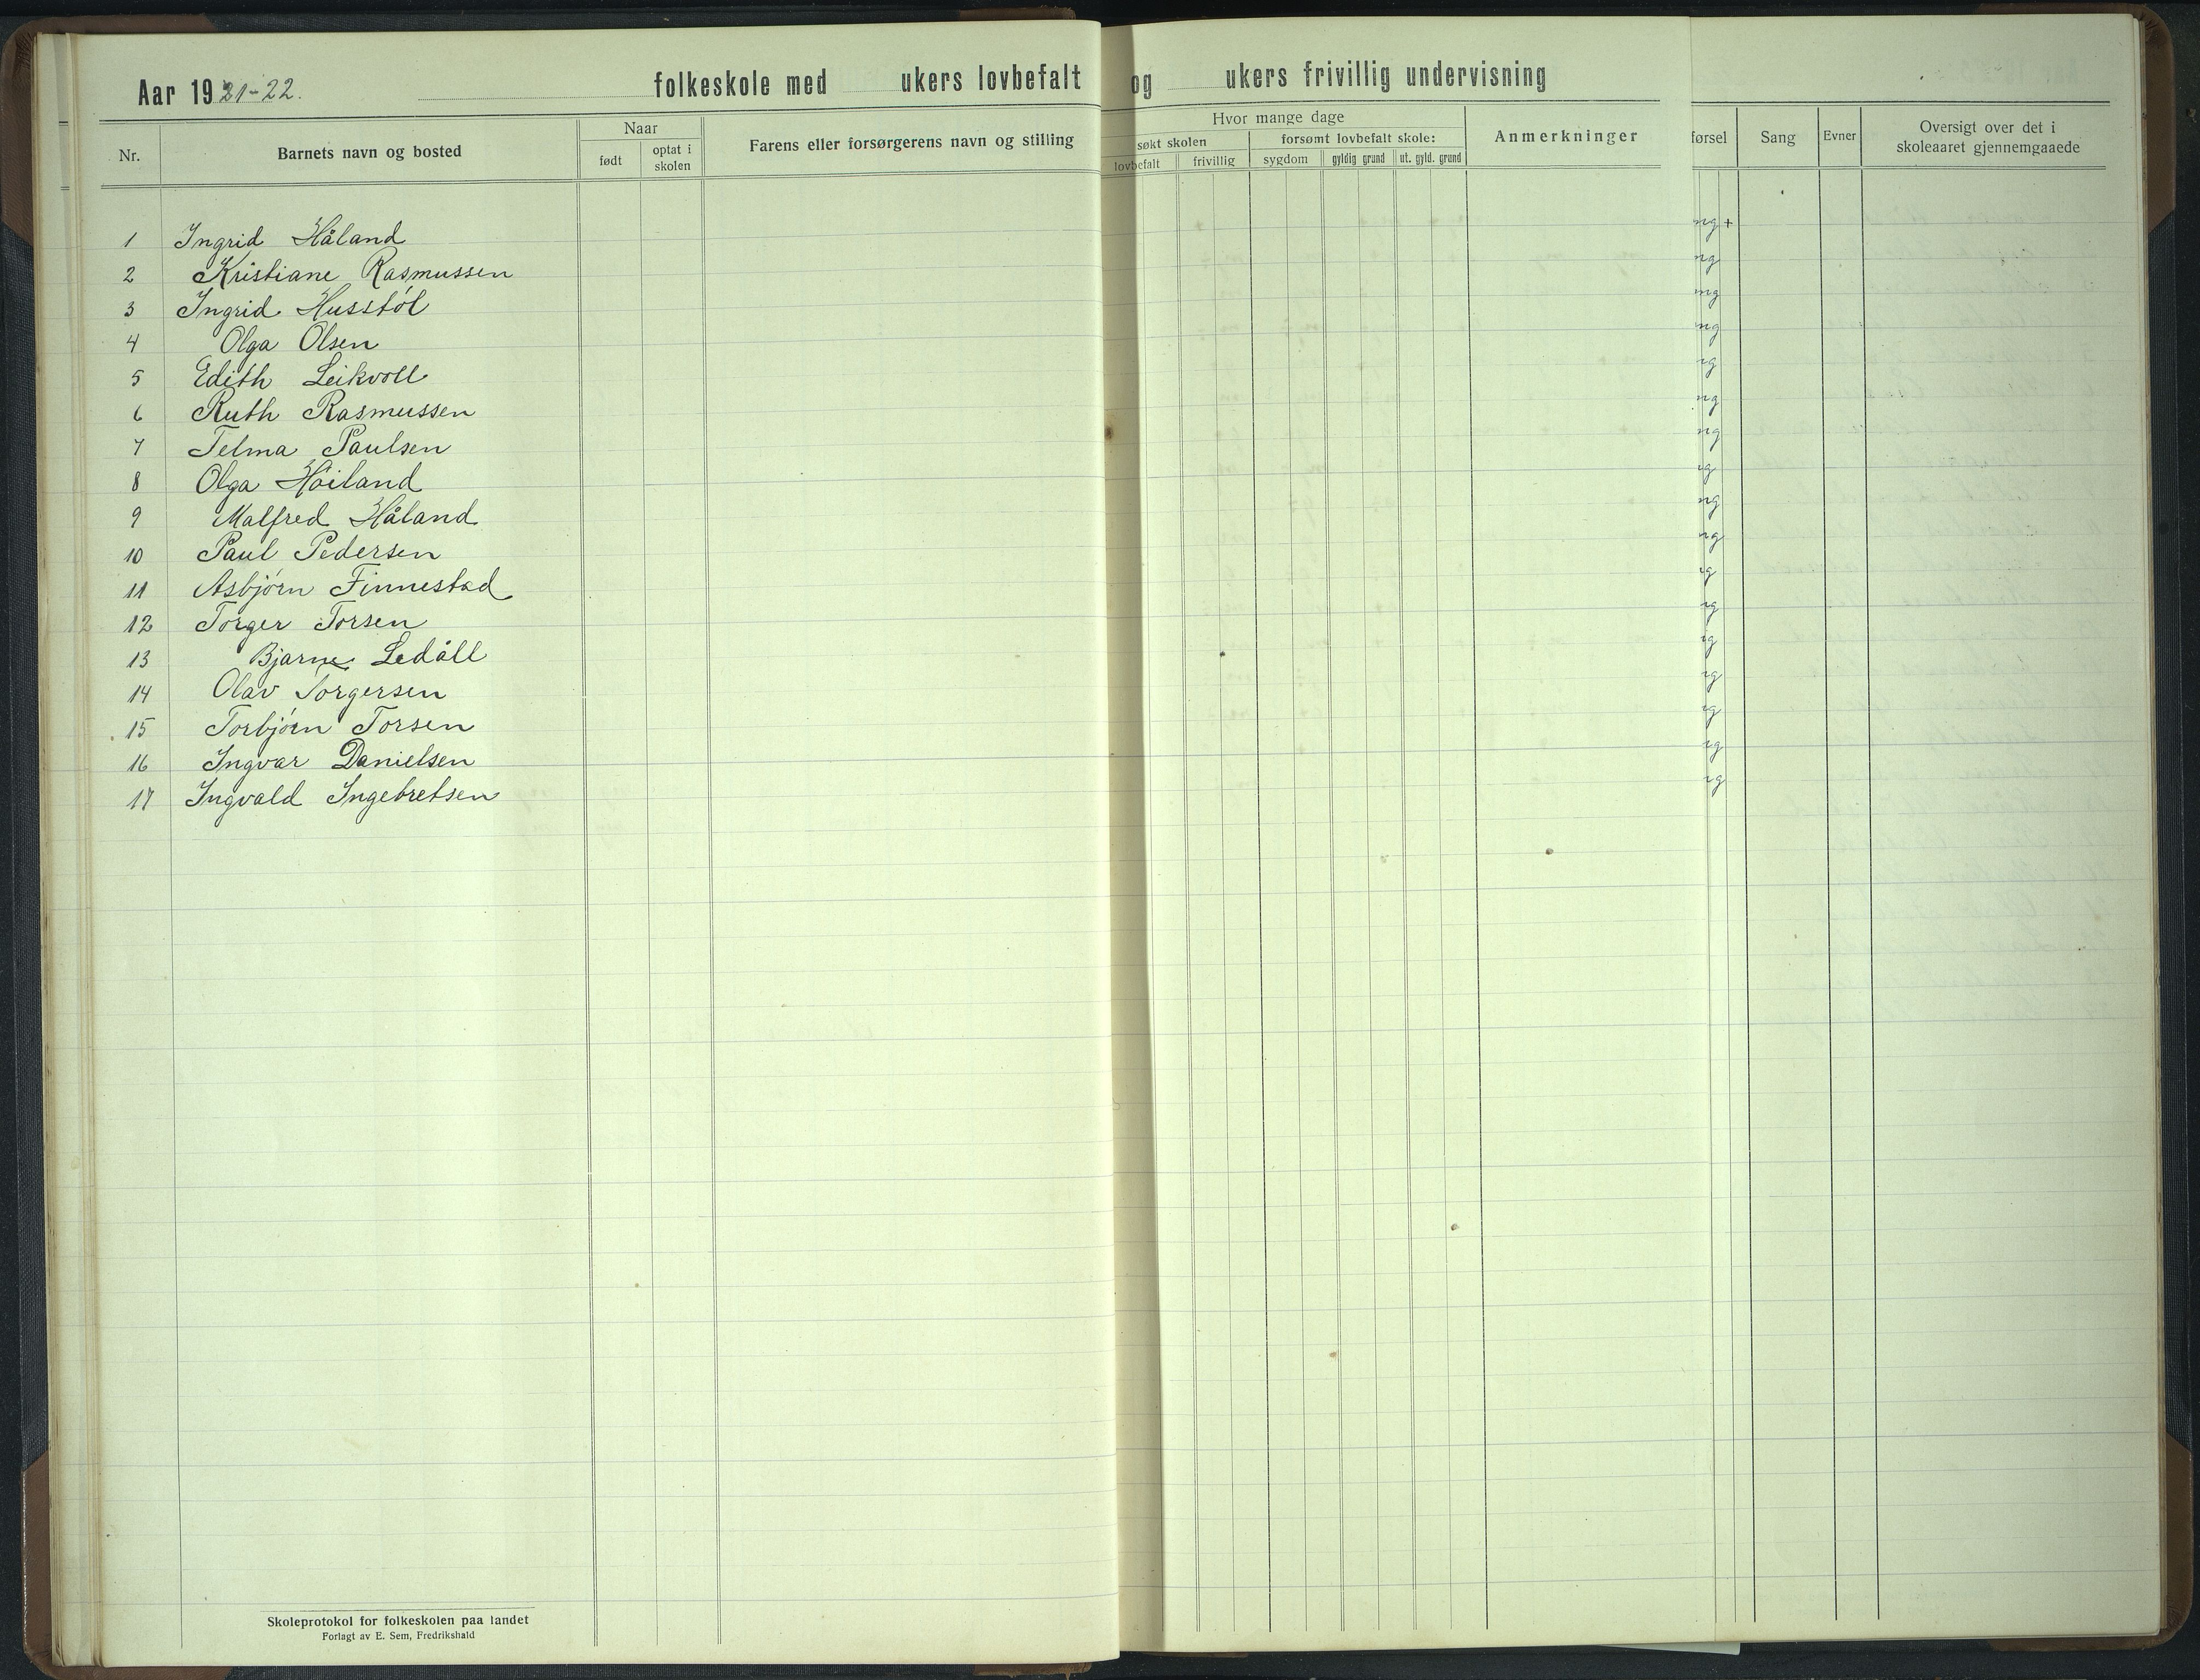 Aar 1921-22. folkeskole med ukers lovbefalt og ukers frivillig undervisning
Nr.
Barnets navn og bosted
Naar
født
optat i skolen
Farens eller forsørgerens navn og stilling
Hvor mange dage
søkt skolen
lovbefalt
frivillig
forsømt lovbefalt skole:
sygdom
gyldig grund
ut. gyld. grund
Anmerkninger
førsel
Sang
Evner
Oversigt over det i skoleaaret gjennemgaaede
1 Ingrid Håland
2 Kristiane Rasmussen
3 Ingrid Husstøl
4 Olga Olsen
5 Edith Leikvoll
6 Ruth Rasmussen
7 Telma Paulsen
8 Olga Høiland
9 Malfred Håland
10 Paul Pedersen
11 Asbjørn Finnestad
12 Torger Torsen
13 Bjarne Ledåll
14 Olav Torgersen
15 Torbjørn Torsen
16 Ingvar Danielsen
17 Ingvald Ingebretsen
Skoleprotokol for folkeskolen paa landet
Forlagt av E. Sem, Fredrikshald